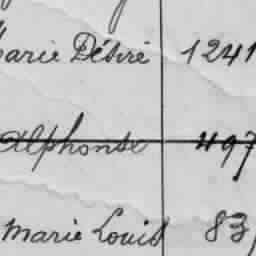 Marie Désiré 1241
Alphonse 497
Marie Louis 83